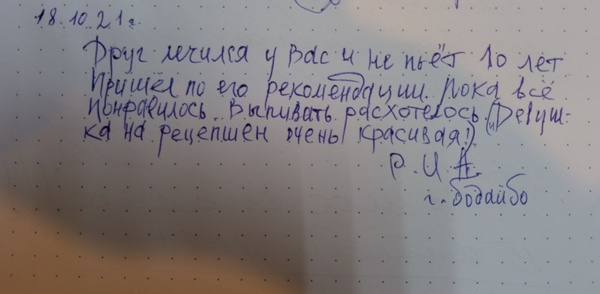 18.10.21г.
Друг лечился у Вас и не пьёт 10 лет
Пришел по его рекомендации. Пока всё
понравилось. Выпивать расхотелось. (Девуш-
ка на рецепшен очень красивая!)
Р. И. А.
г. Бодайбо